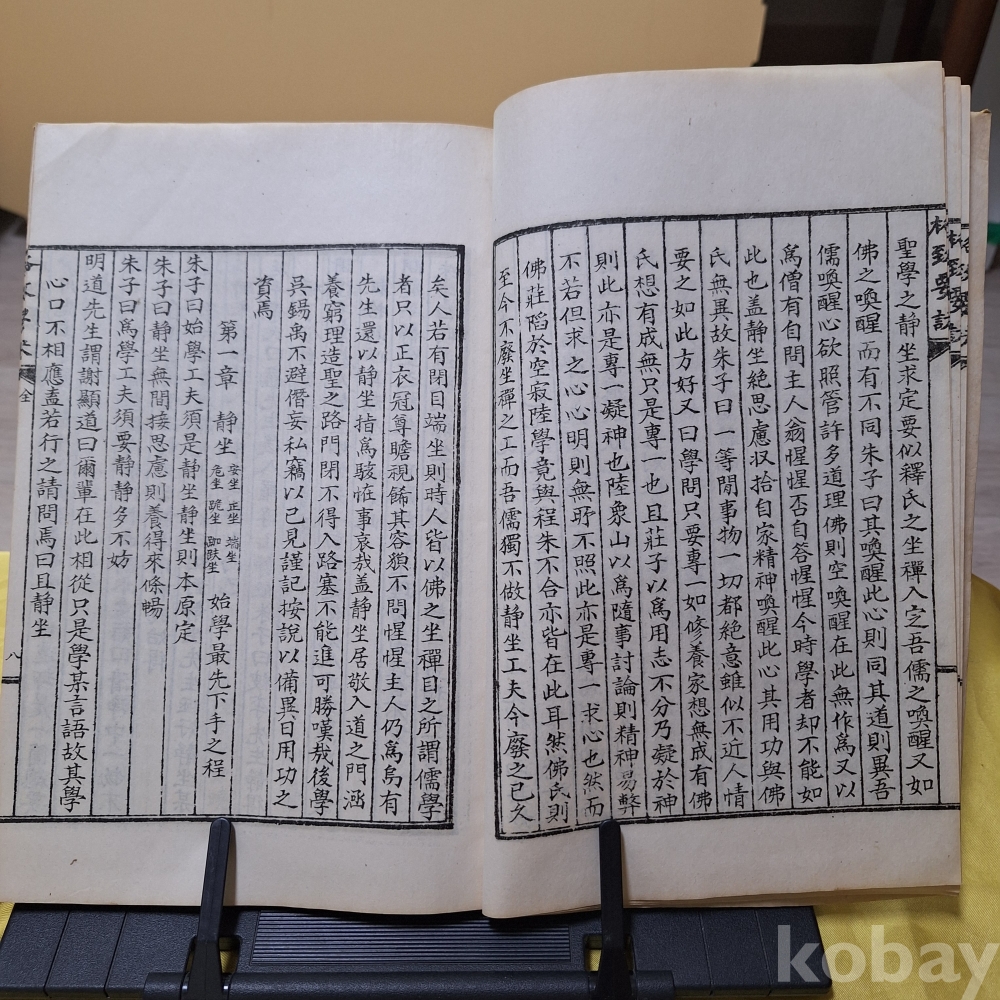 聖學之静坐求定要以釋氏之坐禪入定吾儒之喚醒又如
佛之喚醒而有不同朱子曰其喚醒此心則同其道則異吾
儒喚醒心欲照管許多道理佛則空喚醒在此無作爲又以
爲僧有自問主人翁惺惺否自答惺惺今時學者却不能如
此也盖静坐絶思慮収拾自家精神喚醒此心其用功與佛
氏無異故朱子曰一等閒事物一切都絶意雖似不近人情
要之如此方好又曰學問只要專一如修養家想無成有佛
氏想有成無只是專一也且莊子以爲用志不分乃凝於神
則此亦是專一凝神也陸象山以爲隨事討論則精神易弊
不若但求之心心明則無所不照此亦是專一求心也然而
佛莊陷於空寂陸學竟與程朱不合亦皆在此耳然佛氏則
至今不廢坐禪之工而吾儒獨不做静坐工夫今廢之已久
矣人若有閉目端坐則時人皆以佛之坐禪目之所謂儒學
者只以正衣冠尊瞻視餙其容貌不問惺惺主人仍爲烏有
先生還以静坐指爲駭恠事哀哉盖静坐居敬入道之門涵
養窮理造聖之路門閉不得入路塞不能進可勝嘆哉後學
吳錫禹不避僭妄私竊以已見謹記按說以備異日用功之
資焉
第一章 静坐 安坐 正坐 端坐 危坐 跪坐 跏趺坐 始學最先下手之程
朱子曰始學工夫須是静坐静坐則本原定
朱子曰静坐無閒接思慮則養得來條暢
朱子曰爲學工夫須要静静多不妨
明道先生謂謝顯道曰爾輩在此相從只是學某言語故其學
心口不相應盍若行之請問焉曰且静坐
全
八
kobay